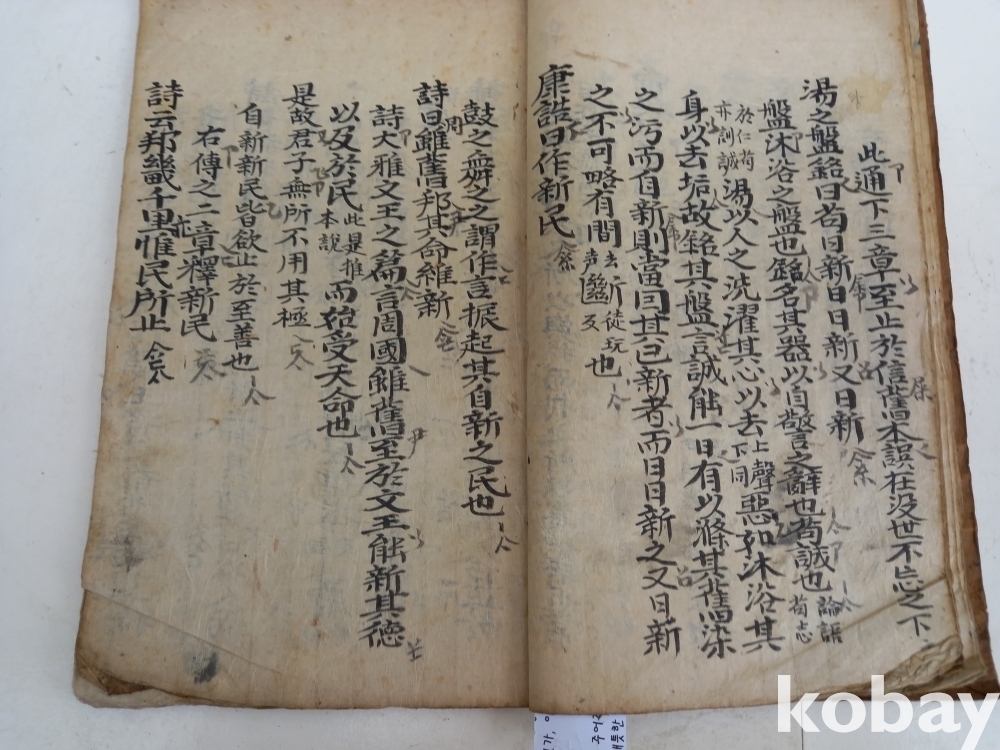 此通下三章至止於信舊本誤在没世不忘之下
湯之盤銘曰苟日新日日新又日新
盤沐浴之盤也銘名其器以自警之辭也苟誠也論語苟志
於仁苟亦訓誠湯以人之洗濯其心以去上聲下同惡如沐浴其
身以去垢故銘其盤言誠能一日有以滌其舊染
之污而自新則當因其已新者而日日新之又日新
之不可略有間去声斷徒玩反也
康誥曰作新民
鼓之舞之之謂作言振起其自新之民也
詩曰周雖舊邦其命維新
詩大雅文王之篇言周國雖舊至於文王能新其德
以及於民此是推本說而始受天命也
是故君子無所不用其極
自新新民皆欲止於至善也
右傳之二章釋新民
詩云邦畿千里惟民所止
kobay
주어